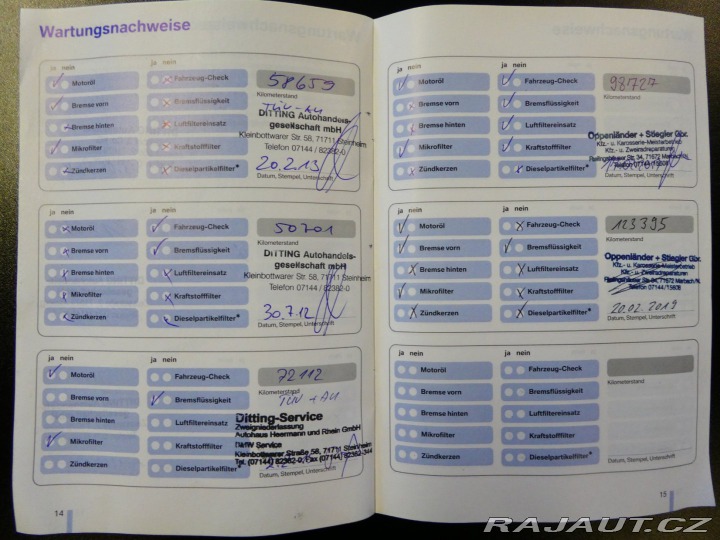 Wartungsnachweise
ja nein
ja nein
Motoröl
Fahrzeug-Check
58659
Kilometerstand
Bremse vorn
Bremsflüssigkeit
TÜV-AU
DITTING Autohandels-
gesellschaft mbH
Bremse hinten
Luftfiltereinsatz
Kleinbottwarer Str. 58, 71711 Steinheim
Mikrofilter
Kraftstofffilter
Telefon 07144 / 82382-0
Zündkerzen
Dieselpartikelfilter*
20.2.13
Datum, Stempel, Unterschrift
ja nein
ja nein
Motoröl
Fahrzeug-Check
50701
Kilometerstand
Bremse vorn
Bremsflüssigkeit
DITTING Autohandels-
gesellschaft mbH
Bremse hinten
Luftfiltereinsatz
Kleinbottwarer Str. 58, 71711 Steinheim
Telefon 07144 / 82382-0
Mikrofilter
Kraftstofffilter
Zündkerzen
Dieselpartikelfilter*
30.7.12
Datum, Stempel, Unterschrift
ja nein
ja nein
Motoröl
Fahrzeug-Check
72112
Kilometerstand
Bremse vorn
Bremsflüssigkeit
TÜV + AU
Ditting-Service
Zweigniederlassung
Bremse hinten
Luftfiltereinsatz
Autohaus Heermann und Rhein GmbH
BMW Service
Mikrofilter
Kraftstofffilter
Kleinbottwarer Straße 58, 71711 Steinheim
Tel. (07144) 82382-0, Fax (07144) 82382-344
Zündkerzen
Dieselpartikelfilter*
Datum, Stempel, Unterschrift
14
ja nein
ja nein
Motoröl
Fahrzeug-Check
98727
Kilometerstand
Bremse vorn
Bremsflüssigkeit
Bremse hinten
Luftfiltereinsatz
Oppenländer + Stiegler Gbr.
Kfz.- u. Karosserie-Meisterbetrieb
Kfz.- u. Zweiradreparaturen
Mikrofilter
Kraftstofffilter
Str. 34, 71672 Marbach/N.
Telefon 07144/15808
Zündkerzen
Dieselpartikelfilter*
Datum, Stempel, Unterschrift
ja nein
ja nein
Motoröl
Fahrzeug-Check
123395
Kilometerstand
Bremse vorn
Bremsflüssigkeit
Oppenländer + Stiegler Gbr.
Kfz.- u. Karosserie-Meisterbetrieb
Kfz.- u. Zweiradreparaturen
Bremse hinten
Luftfiltereinsatz
Str. 34, 71672 Marbach/N.
Telefon 07144/15808
Mikrofilter
Kraftstofffilter
20.02.2019
Zündkerzen
Dieselpartikelfilter*
Datum, Stempel, Unterschrift
ja nein
ja nein
Motoröl
Fahrzeug-Check
Kilometerstand
Bremse vorn
Bremsflüssigkeit
Bremse hinten
Luftfiltereinsatz
Mikrofilter
Kraftstofffilter
Zündkerzen
Dieselpartikelfilter*
Datum, Stempel, Unterschrift
15
RAJAUT.CZ